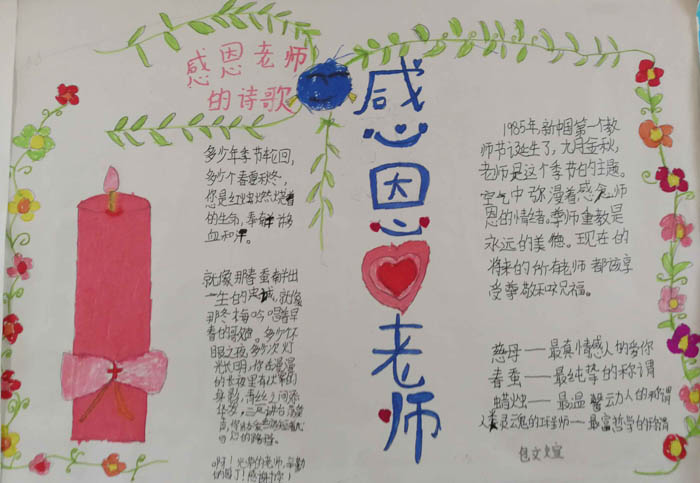 感恩老师
的诗歌
多少年季节轮回,
多少个春夏秋冬,
您是红烛燃烧着
的生命,奉献
血和汗。
就像那春蚕献出
一生的忠诚,就像
那冬梅吟唱着早
春的歌
多少次灯
光长明,你在漫漫
的长夜里有伏案的
身影,青丝之间添
华发,三尺讲台
啊!光荣的老师,辛勤
的园丁!感谢你!
感恩
老师
1985年,新中国第一个教
师节诞生了,九月金秋,
老师是这个季节的主题。
空气中弥漫着感念师
恩的情绪。尊师重教是
永远的美德。现在的
将来的所有老师都该享
受尊敬和祝福。
慈母——最真情感人的爱你
春蚕——最纯挚的称谓
蜡烛——最温馨动人的称谓
人类灵魂的工程师——最富哲学的称谓
包文宜